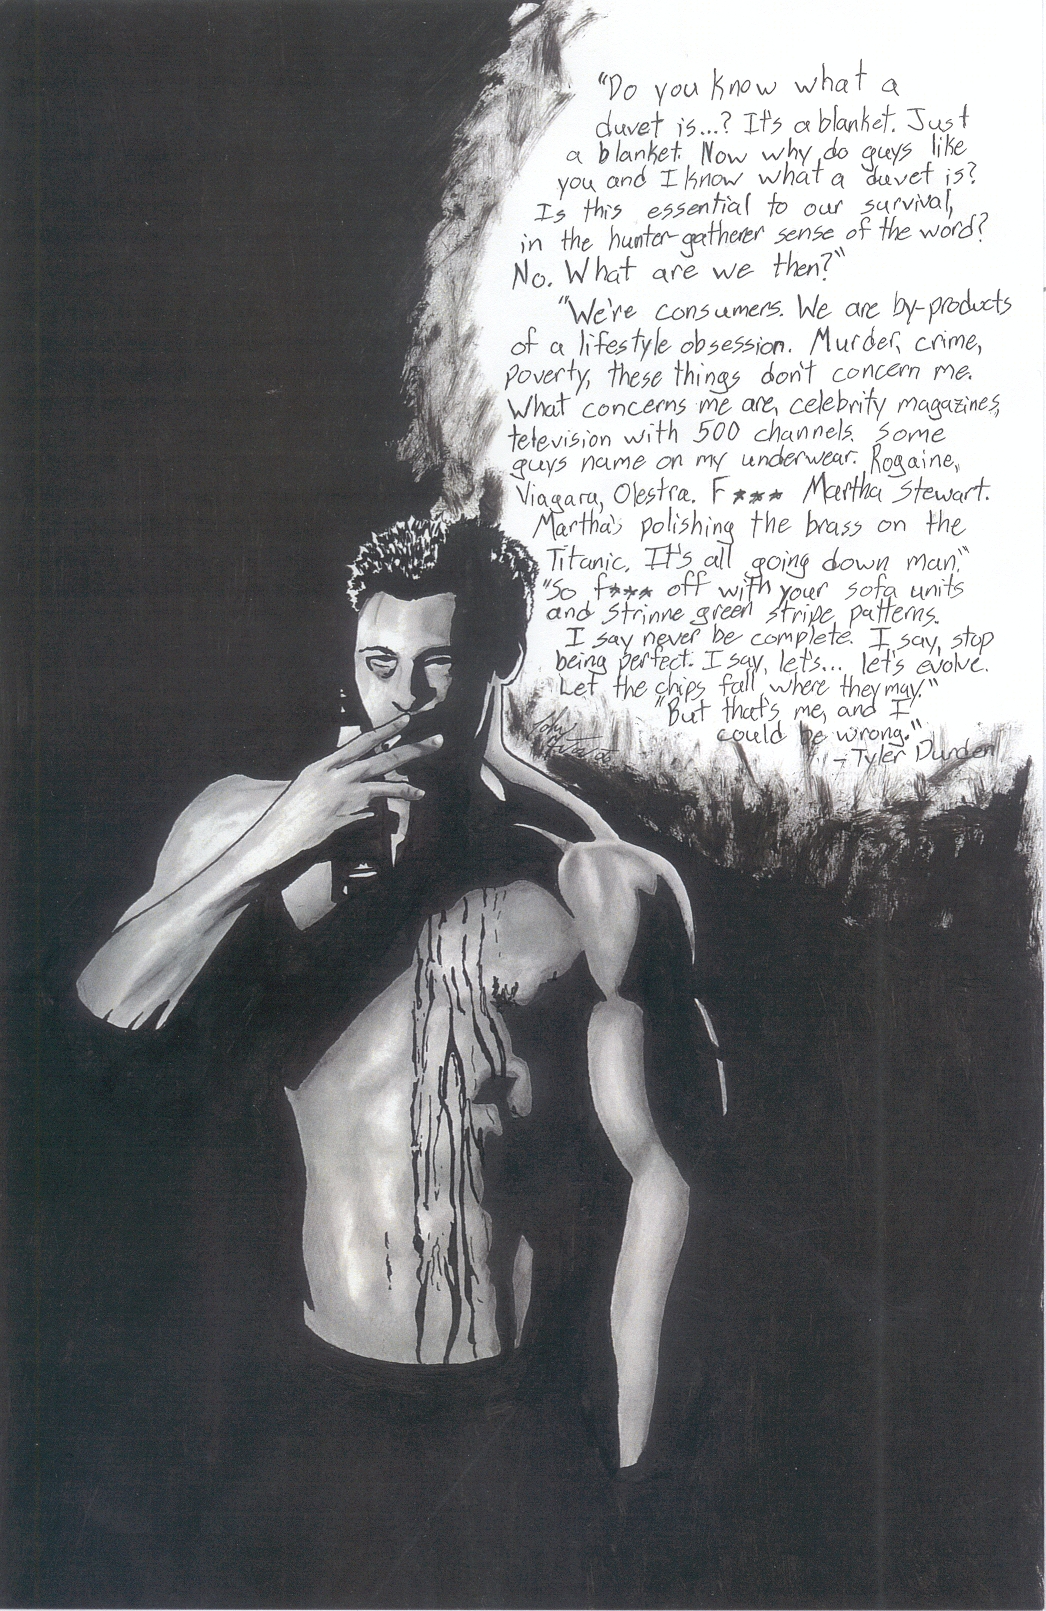 "Do you know what a
duvet is...? It's a blanket. Just
a blanket. Now why do guys like
you and I know what a duvet is?
Is this essential to our survival,
in the hunter-gatherer sense of the word?
No. What are we then?"
"We're consumers. We are by-products
of a lifestyle obsession. Murder, crime,
poverty, these things don't concern me.
What concerns me are, celebrity magazines,
television with 500 channels. Some
guys name on my underwear. Rogaine,
Viagara, Olestra. F*** Martha Stewart.
Martha's polishing the brass on the
Titanic. It's all going down man."
"So f*** off with your sofa units
and Strinne green stripe patterns.
I say never be complete. I say, stop
being perfect. I say, let's... let's evolve.
Let the chips fall where they may."
"But that's me, and I
could be wrong."
-Tyler Durden